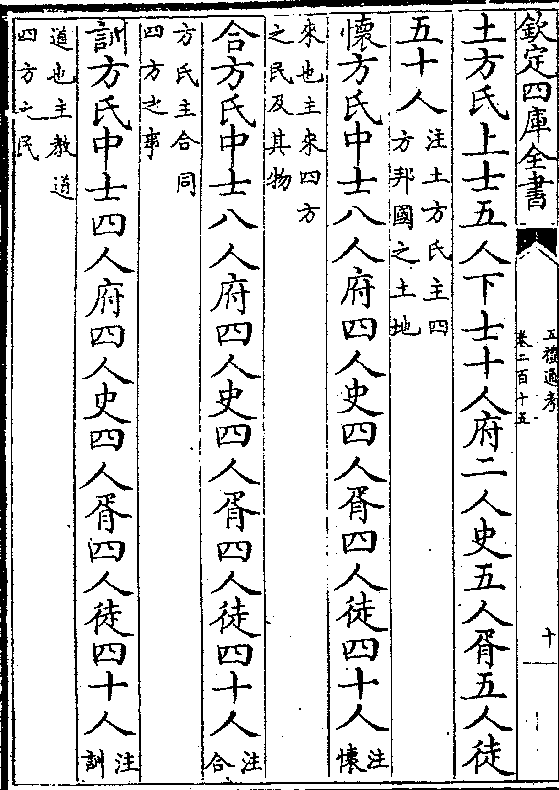 欽定四庫全書
五禮通考
卷二百十五
十
土方氏上士五人下士十人府二人史五人胥五人徒
五十人
注土方氏主四
方邦國之土地
懷方氏中士八人府四人史四人胥四人徒四十人
注
懷
來也主來四方
之民及其物
合方氏中士八人府四人史四人胥四人徒四十人
注
合
方氏主合同
四方之事
訓方氏中士四人府四人史四人胥四人徒四十人
注
訓
道也主教道
四方之民